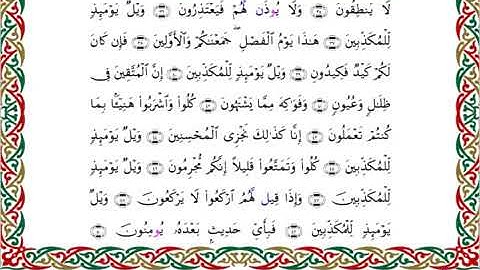 لَا يَنطِقُونَ وَلَا يُوذَن لَّهُمْ فَيَعْتَذِرُونَ وَيْلٌ يَوْمَئِذٍ
لِّلْمُكَذِّبِينَ هَٰذَا يَوْمُ الْفَصْلِ جَمَعْنَاكُمْ وَالْأَوَّلِينَ فَإِن كَانَ
لَكُمْ كَيْدٌ فَكِيدُونِ وَيْلٌ يَوْمَئِذٍ لِّلْمُكَذِّبِينَ إِنَّ الْمُتَّقِينَ فِي
ظِلَالٍ وَعُيُونٍ وَفَوَاكِهَ مِمَّا يَشْتَهُونَ كُلُوا وَاشْرَبُوا هَنِيئًا بِمَا
كُنتُمْ تَعْمَلُونَ إِنَّا كَذَٰلِكَ نَجْزِي الْمُحْسِنِينَ وَيْلٌ يَوْمَئِذٍ
لِّلْمُكَذِّبِينَ كُلُوا وَتَمَتَّعُوا قَلِيلًا إِنَّكُم مُّجْرِمُونَ وَيْلٌ يَوْمَئِذٍ
لِّلْمُكَذِّبِينَ وَإِذَا قِيل لَّهُمُ ارْكَعُوا لَا يَرْكَعُونَ وَيْلٌ
يَوْمَئِذٍ لِّلْمُكَذِّبِينَ فَبِأَيِّ حَدِيثٍ بَعْدَهُ يُومِنُونَ